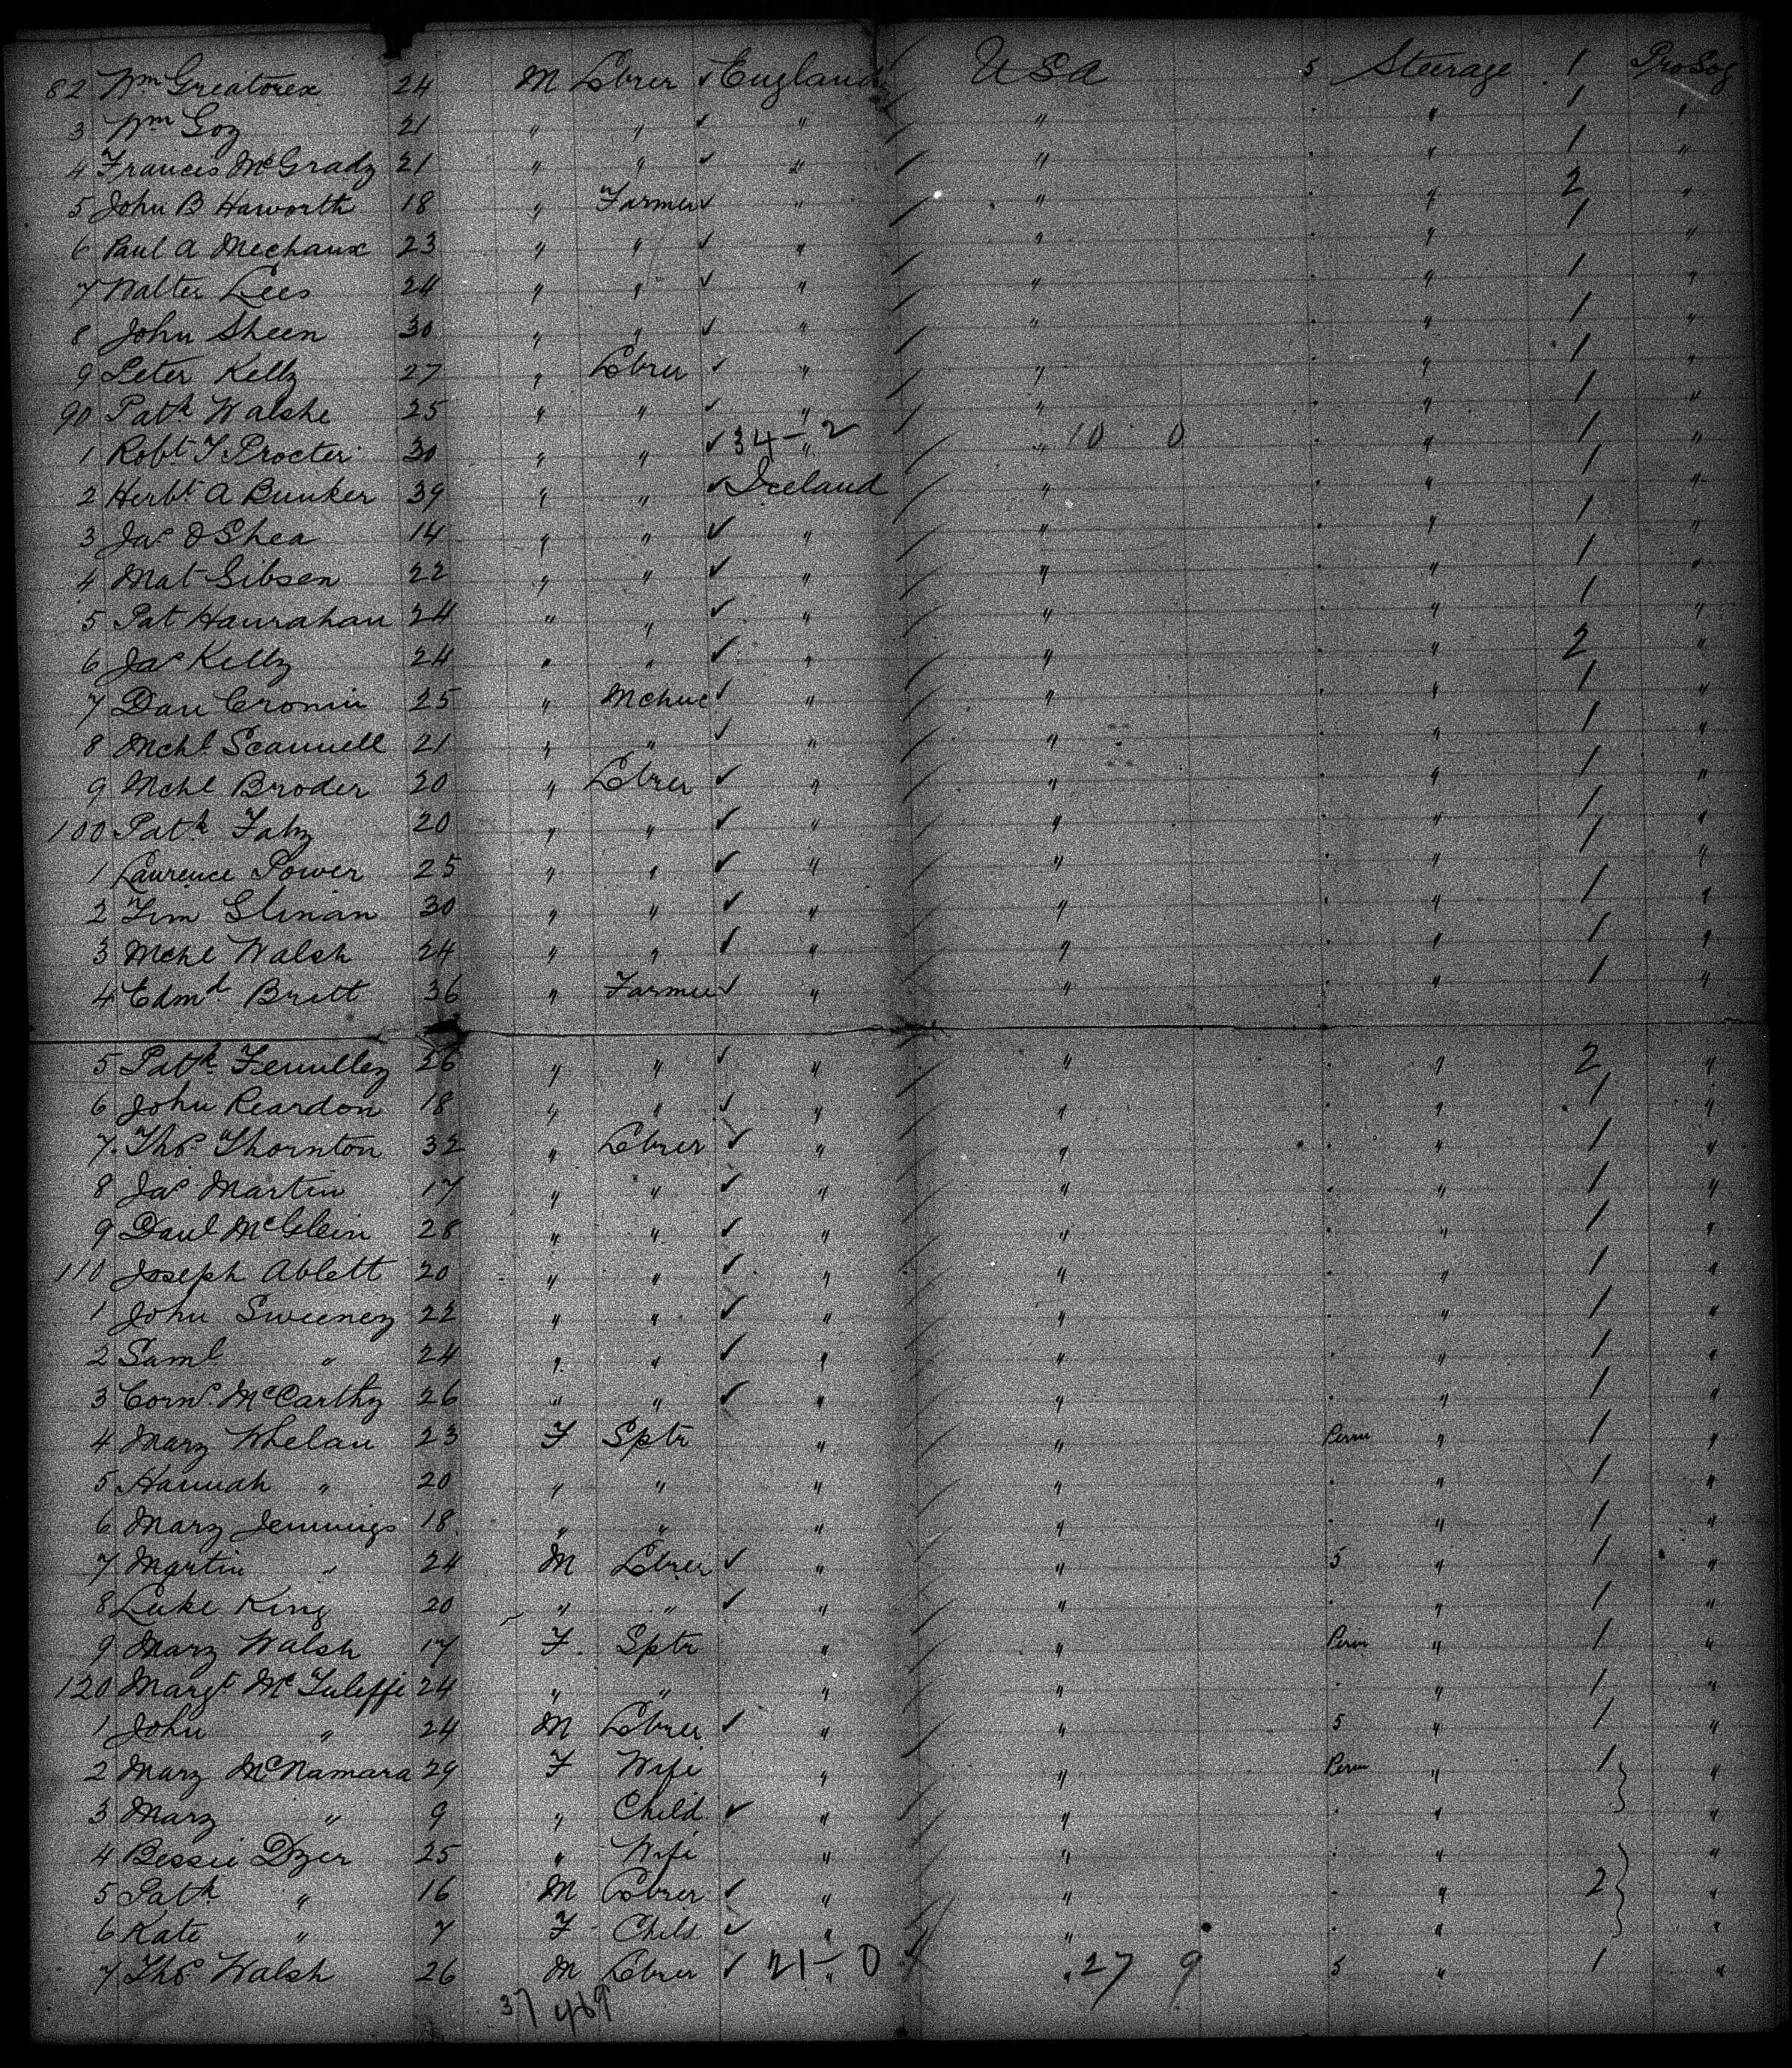 82 Wm Greatorex 24 M Lbrer ✓ England USA 5 Steerage 1 Pro Sog
3 Wm Goy 21 " " ✓ " " " 1 "
4 Francis McGrady 21 " " ✓ " " " 1 "
5 John B Haworth 18 " Farmer ✓ " " " 2 "
6 Paul A Mechaux 23 " " ✓ " " " 1 "
7 Walter Lees 24 " " ✓ " " " 1 "
8 John Sheen 30 " " ✓ " " " 1 "
9 Peter Kelly 27 " Lbrer ✓ " " " 1 "
90 Patk Walshe 25 " " ✓ " " " 1 "
1 Robt T Procter 30 " " ✓ 34 - 2 " " 10 0 " 1 "
2 Herbt A Bunker 39 " " ✓ Ireland " " 1 "
3 Jas O Shea 14 " " ✓ " " " 1 "
4 Mat Gibson 22 " " ✓ " " " 1 "
5 Pat Hanrahan 24 " " ✓ " " " 1 "
6 Jas Kelly 24 " " ✓ " " " 2 "
7 Dan Cronin 25 " Mchnc ✓ " " " 1 "
8 Mchl Scannell 21 " " ✓ " " " 1 "
9 Mchl Broder 20 " Lbrer ✓ " " " 1 "
100 Patk Fahy 20 " " ✓ " " " 1 "
1 Laurence Power 25 " " ✓ " " " 1 "
2 Tim Glinan 30 " " ✓ " " " 1 "
3 Mchl Walsh 24 " " ✓ " " " 1 "
4 Edmd Britt 36 " Farmer ✓ " " " 1 "
5 Patk 26 " " ✓ " " " 2 "
6 John Reardon 18 " " ✓ " " " 1 "
7 Thos Thornton 32 " Lbrer ✓ " " " 1 "
8 Jas Martin 17 " " ✓ " " " 1 "
9 Danl McGlein 28 " " ✓ " " " 1 "
110 Joseph Ablett 20 " " ✓ " " " 1 "
1 John Sweeney 22 " " ✓ " " " 1 "
2 Saml " 24 " " ✓ " " " 1 "
3 Corns McCarthy 26 " " ✓ " " " 1 "
4 Mary Whelan 23 F Sptr " " Perm " 1 "
5 Hannah " 20 " " " " " 1 "
6 Mary Jennings 18 " " " " " 1 "
7 Martin " 24 M Lbrer ✓ " " 5 " 1 "
8 Luke King 20 " " ✓ " " " 1 "
9 Mary Walsh 17 F Sptr " " Perm " 1 "
120 Margt 24 " " " " " 1 "
1 John " 24 M Lbrer ✓ " " 5 " 1 "
2 Mary McNamara 29 F Wife " " Perm " 1 "
3 Mary " 9 " Child ✓ " " " "
4 Bessie Dyer 25 " Wife " " " "
5 Patk " 16 M Lbrer ✓ " " " 2 "
6 Kate " 7 F Child ✓ " " " "
7 Thos Walsh 26 M Lbrer ✓ 21 - 0 " " 27 9 5 " 1 "
37